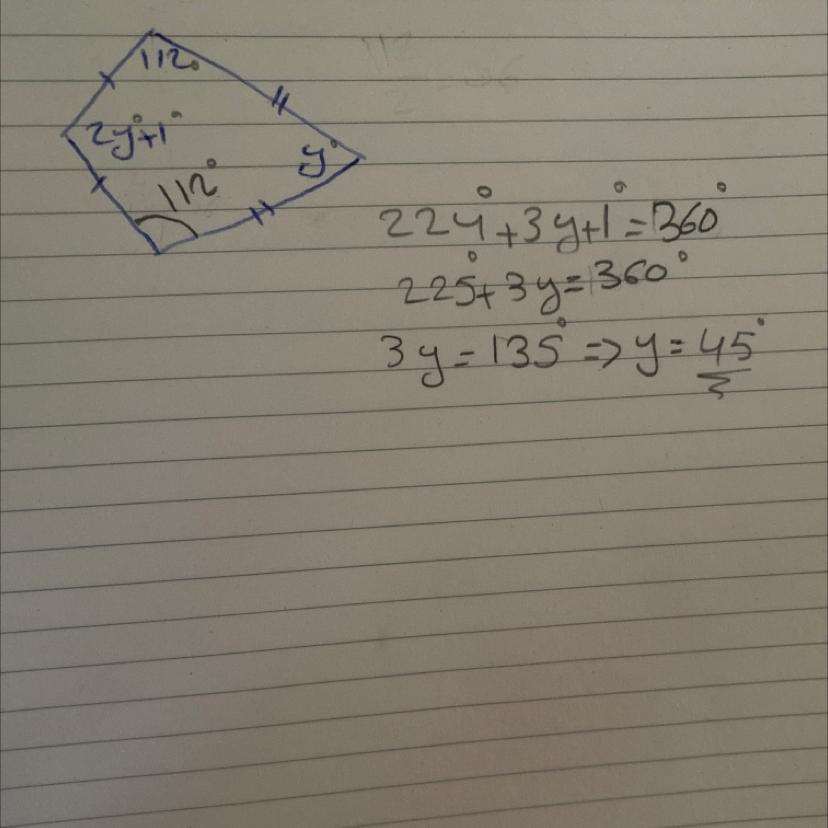 112°
2y°+1°
y°
112°
224°+3y+1°=360°
225°+3y=360°
3y=135°=>y=45°